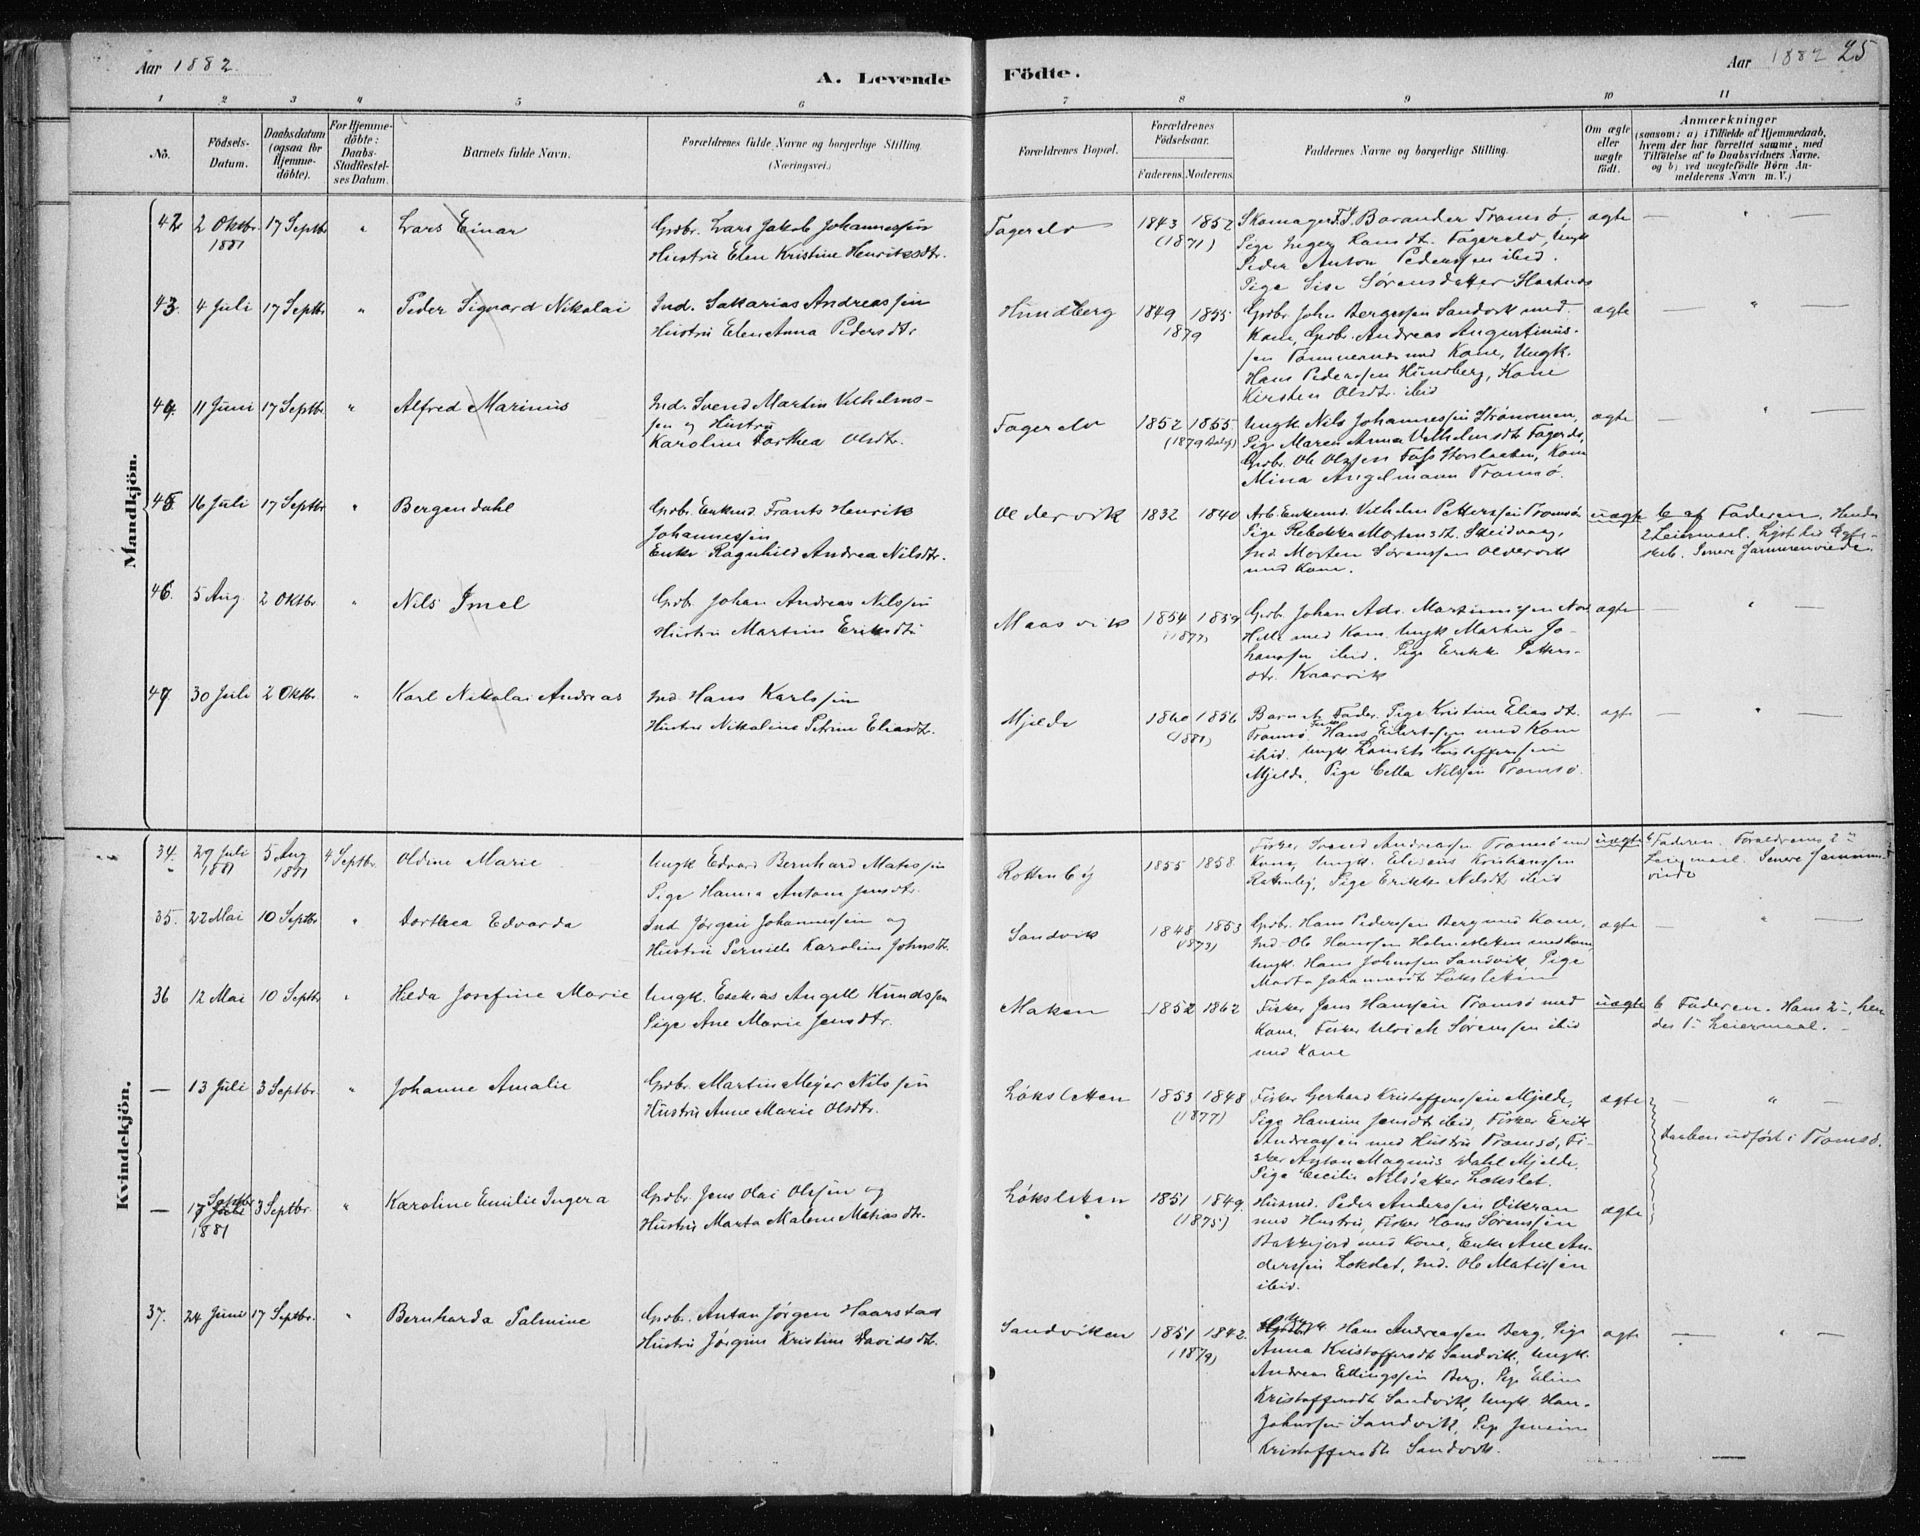 Aar 1882
A. Levende Födte.
Aar 1882 25
1 2 3 4 5 6 7 8 9 10 11
No.
Födsels-Datum.
Daabsdatum (ogsaa for Hjemme-döbte).
For Hjemme-döbte: Daabs-Stadfæstel-ses Datum.
Barnets fulde Navn.
Forældrenes fulde Navne og borgerlige Stilling. (Næringsvei.)
Forældrenes Bopæl.
Forældrenes Födselsaar.
Faderens. Moderens.
Faddernes Navne og borgerlige Stilling.
Om ægte eller uægte födt.
Anmærkninger
(saasom: a) i Tilfælde af Hjemmedaab,
hvem der har forrettet samme, med
Tilföielse af to Daabsvidners Navne.
og b) ved uægtefödte Börn An-
melderens Navn m. V.)
Mandkjön.
42 2 Oktbr. 1881 17 Septbr " Lars Einar
Gbr. Lars Jakob Johannessen
Hustru Elen Kristine Henriksdtr.
Fagerelv 1843 1852 (1871)
Skomager F. S. Barander Tromsø,
Pige Inger Hansdt. Fagerelv, Ungk
Peder Anton Pederssen ibid.
Pige Sise Sørensdatter
ægte — " —
43. 4 Juli 17 Septbr " Peder Sigvard Nikolai
Ind. Sakarias Andreassen
Hustru Elen Anna Pedersdtr
Hundberg 1849 1855 1879
Gbr. John Bergessen Sandvik med
Kone, Gbr. Andreas Augustinus-
sen med Kone, Ungk.
Hans Pederssen Hundberg, Kone
Kirsten Olsdtr. ibid
ægte — " —
44. 11 Juni 17 Septbr. " Alfred Marinus
Ind. Svend Martin Vilhelms-
sen og Hustru
Karoline Dorthea Olsdtr.
Fagerelv 1852 1855. (1879
Ungk Nils Johannessen
Pige Maren Anna Vilhelmsdt
Gbr. Ole Olssen Kone
Mina Angelmann Tromsø.
ægte — " —
45. 16 Juli 17 Septbr " Bergendahl
Gbr. Enkmd. Frants Henrik
Johannessen
Enke Ragnhild Andrea Nilsdtr.
Oldervik 1832 1840
Arb. Enkemd. Vilhelm Petterssen Tromsø
Pige Rebekka Mortensdt.
Ind Morten Sørenssen Oldervik
med Kone.
uægte
b af Faderen. Hendes
2 Leiermaal. Senere Sammenviede.
46. 5 Aug. 2 Oktbr " Nils Imel
Gbr. Johan Andreas Nilssen
Hustru Martine Eriksdtr
Maasvik 1854 1859 (1877)
Gbr. Johan Adr. Martinussen
med Kone. Ungk Martin Jo-
hanssen ibid. Pige Erikke Petters-
dtr. Kaarvik
ægte — " —
47 30 Juli 2 Oktbr. " Karl Nikolai Andreas
Ind. Hans Karlssen
Hustru Nikoline Petrine Eliasdtr.
Mjelde 1860 1856 (1881)
Barnets Fader. Pige Kristine Eliasdt.
Tromsø. Hans Eilertssen med Kone
ibid. Ungk.
Mjelde, Pige Nilssen Tromsø.
ægte — " —
Kvindekjön.
34. 29 Juli 1881 5 Aug 1881 4 Septbr. Oldine Marie
Ungk Edvard Bernhard Matssen
Pige Hanna Antone Jensdtr.
1855 1858
Fisker Andreassen Tromsø med
Kone, Ungk. Kristianssen
Pige Erikke Nilsdt ibid
uægte
b Faderen. Forældrenes 2
Leiermaal. Senere Sammen-
viede
35. 22 Mai 10 Septbr " Dorthea Edvarda
Ind Jørgen Johannessen og
Hustru Pernille Karoline Johnsdtr.
Sandvik 1848 1853 (1873)
Gbr. Hans Pederssen Berg med Kone,
Ind. Ole Hanssen Holmesletten med Kone
Ungk. Hans Johnssen Sandvik, Pige
Marta Løksletten
ægte — " —
36 12 Mai 10 Septbr " Hilda Josefine Marie
Ungk. Esekias Angell Knudssen
Pige Ane Marie Jensdtr.
Maken 1852 1862
Fisker Jens Hanssen Tromsø med
Kone, Fisker Ulrich Sørenssen ibid
med Kone
uægte
b Faderen. Hans 2, hen-
des 1 Leiermaal.
— 13 Juli 3 Septbr. " Johanne Amalie
Gbr. Martin Meyer Nilssen
Hustru Anne Marie Olsdtr.
Løksletten 1853 1848 (1877)
Fisker Gerhard Kristofferssen Mjelde,
Pige Hansine Jensdt ibid, Fisker Erik
Andreassen med Hustru Tromsø, Fi-
sker Anton Magnus Dahl Mjelde,
Pige Cecilie Nilsdatter Løkslet.
ægte — " —
Daaben udført i Tromsø.
— 17 Septbr 1881 3 Septbr. " Karoline Emilie Ingera
Gbr. Jens Olai Olssen og
Hustru Marta Malene Matiasdtr.
Løksletten 1851 1849. (1875)
Husmd. Peder Anderssen Vikran
med Hustru, Fisker Hans Sørenssen
Bakkejord med Kone, Enke Ane An-
derssen Løkslet, Ind. Ole Matissen
ibid.
ægte
37. 24 Juni 17 Septbr. " Bernharda Palmine
Gbr. Antan Jørgen Haarstad
Hustru Jørgine Kristine Davidsdtr.
Sandviken 1851 1842. (1879)
Ungk. Hans Andreassen Berg, Pige
Anna Kristoffersdt Sandvik, Ungk.
Andreas Ellingssen Berg, Pige Eline
Kristoffersdt Sandvik, Ungk. Hans
Johnssen Sandvik, Pige Jensine
Kristoffersdt Sandvik.
ægte — " —